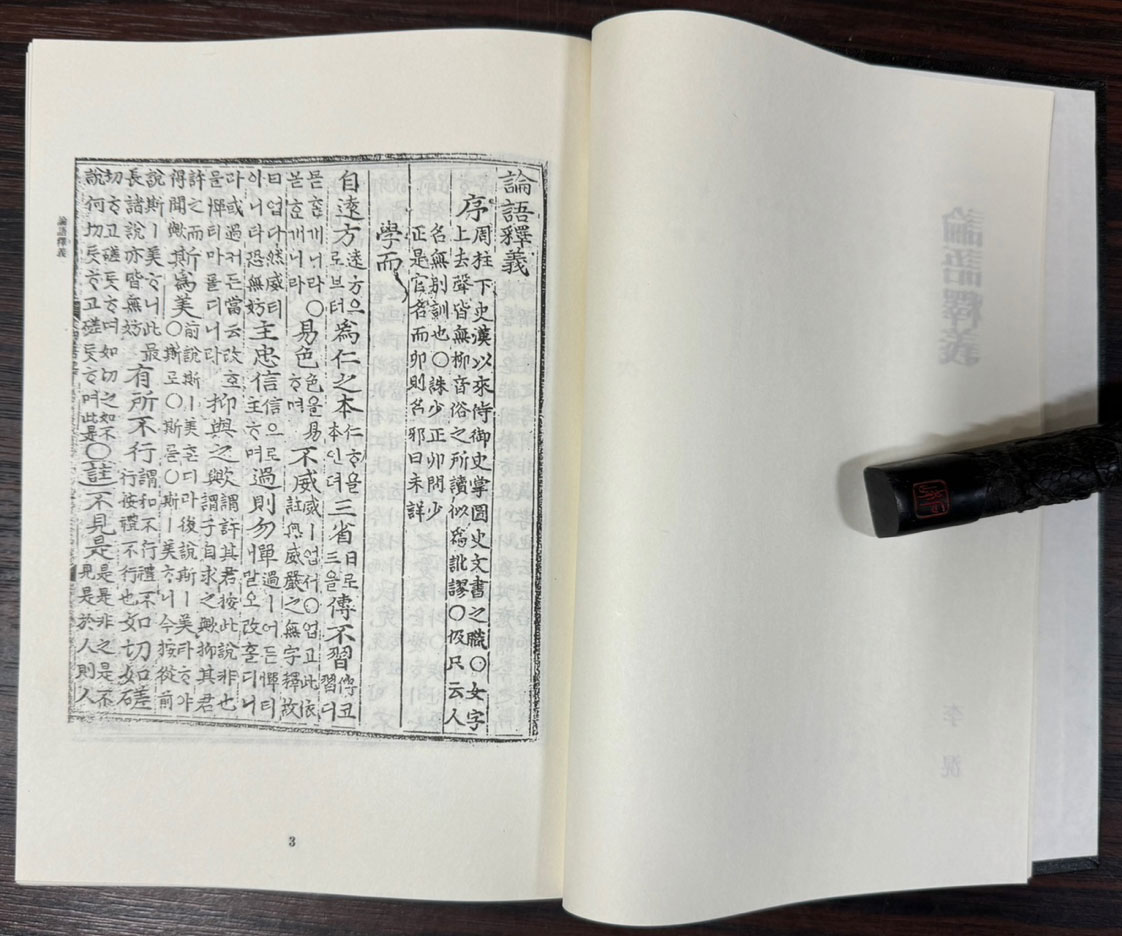 論語釋義
序周柱下史漢以來侍御史掌圖史文書之職〇女字
上去聲皆無柳音俗之所讀似爲訛謬〇伋只云人
名無別訓也〇誅少正卯問少
正是官名而卯則名邪曰未詳
學而
自遠方遠方으로브터爲仁之本仁ᄒᆞ욜本인뎌三省日로三을傳不習傳코習디
몯ᄒᆞᆫ개니라〇몯호개니라易色色을易ᄒᆞ며不威威ㅣ업서〇업고此依註與威嚴之無字釋故
曰업다然威티아니타恐無妨主忠信信으로主ᄒᆞ며過則勿憚過ㅣ어든憚티말오改홀디니
다或過져든當云改호ᄆᆞᆯ憚티마롤디니라抑與之歟謂許其君按此說非也謂予自求之歟抑其君
許之而得聞歟斯爲美〇前說斯ㅣ美ᄒᆞᆫ디라後說斯ㅣ美라ᄒᆞ야斯로〇斯ᄅᆞᆯ〇斯ㅣ美ᄒᆞ니今按從前
說斯ㅣ美ᄒᆞ니此最長諸說亦皆無妨有所不行行謂和不行禮不行按禮不行也如切如磋
切ᄒᆞ고磋ᄐᆞᆺᄒᆞ며如切之如不說何切ᄐᆞᆺᄒᆞ고磋ᄐᆞᆺᄒᆞ며此是〇註不見是是是非之是不見是於人則人
論語釋義
3
論語釋義
李滉